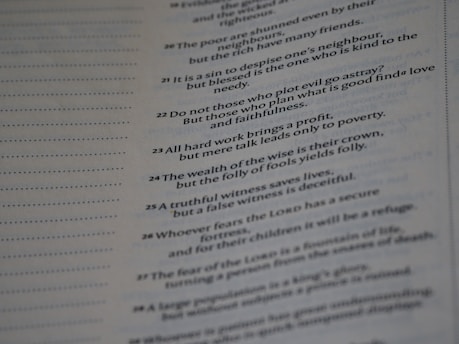 19 Evildoers
and the wicked at
righteous.
20 The poor are shunned even by their
neighbours,
but the rich have many friends.
21 It is a sin to despise one's neighbour,
but blessed is the one who is kind to the
needy.
22 Do not those who plot evil go astray?
But those who plan what is good find a love
and faithfulness.
23 All hard work brings a profit,
but mere talk leads only to poverty.
24 The wealth of the wise is their crown,
but the folly of fools yields folly.
25 A truthful witness saves lives,
but a false witness is deceitful.
26 Whoever fears the LORD has a secure
fortress,
and for their children it will be a refuge.
27 The fear of the LORD is a fountain of life,
turning a person from the snares of death.
28 A large population is a king's glory,
but without subjects a prince is ruined.
29 Whoever is patient has great understanding,